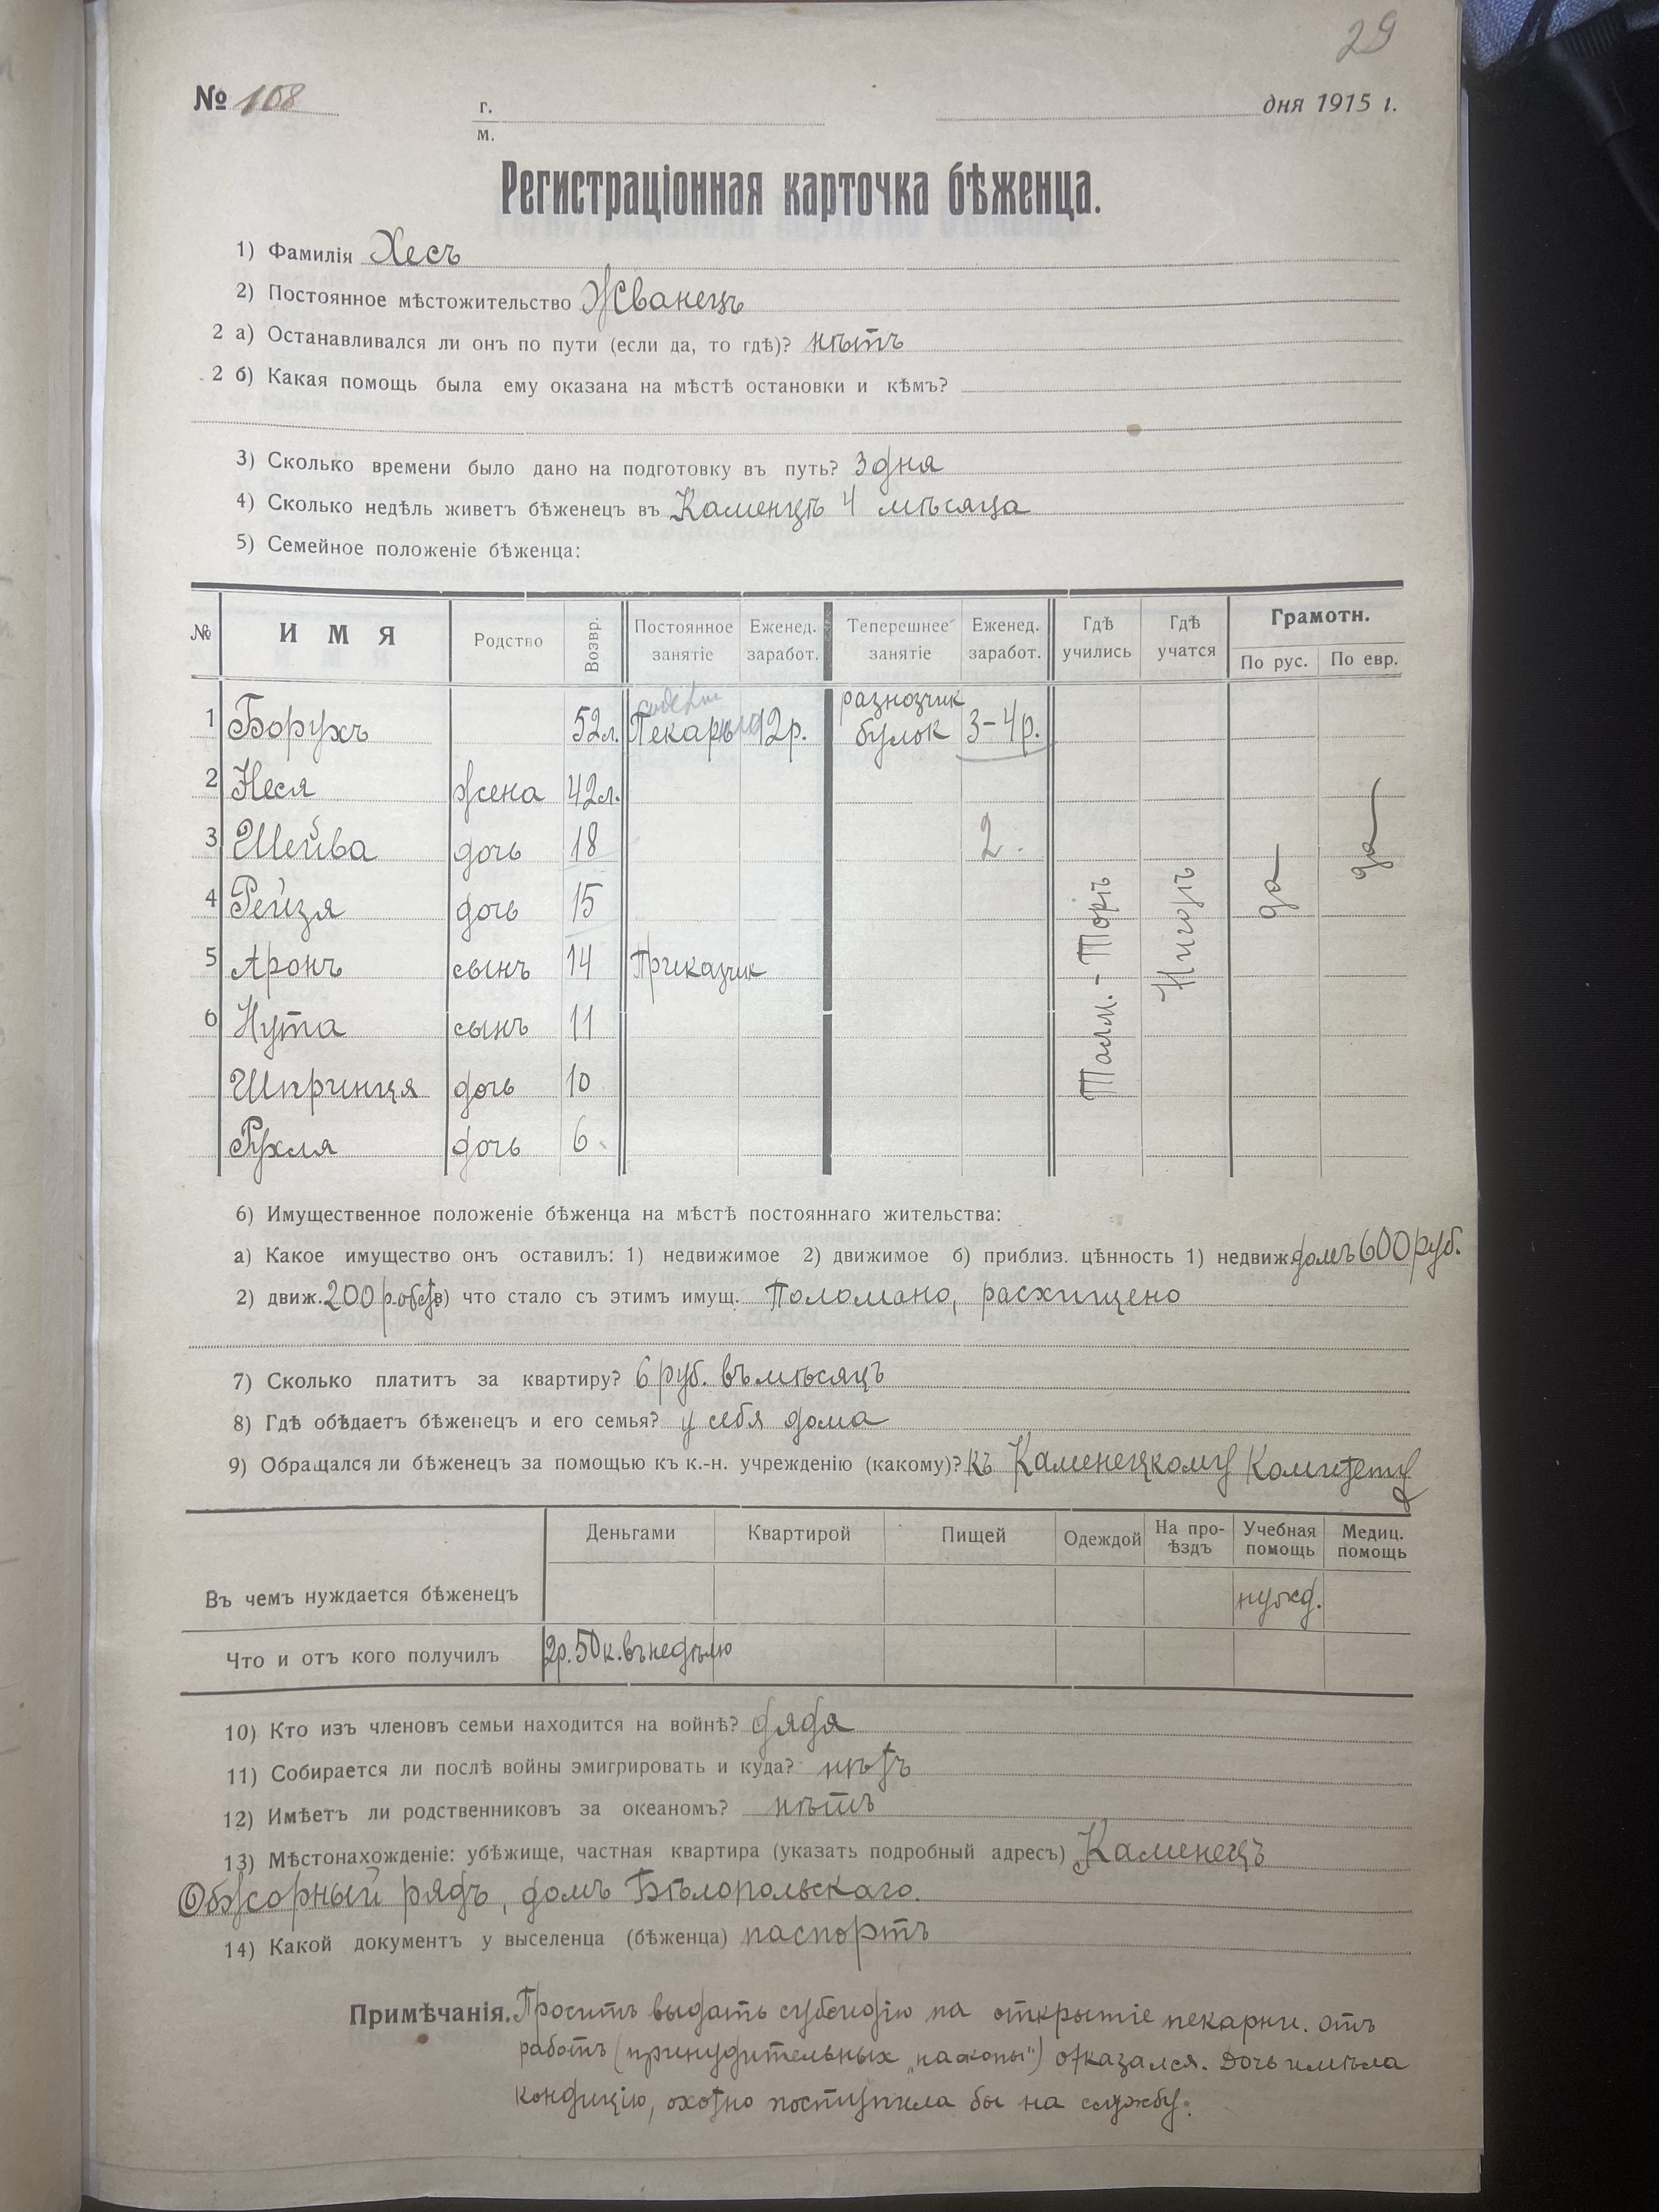 29
№ 168 г. дня 1915 г.
м.
Регистраціонная карточка бѣженца.
1) Фамилія Хесъ
2) Постоянное мѣстожительство Жванецъ
2 а) Останавливался ли онъ по пути (если да, то гдѣ)? нѣтъ
2 б) Какая помощь была ему оказана на мѣстѣ остановки и кѣмъ?
3) Сколько времени было дано на подготовку въ путь? 3 дня
4) Сколько недѣль живетъ бѣженецъ въ Каменцѣ 4 мѣсяца
5) Семейное положеніе бѣженца:
№ ИМЯ Родство Возвр. Постоянное занятіе Еженед. заработ. Теперешнее занятіе Еженед. заработ. Гдѣ учились Гдѣ учатся Грамотн. По рус. По евр.
1 Борухъ 52л. Пекарь 12р. разнозчик булок 3-4р.
2 Неся жена 42л.
3 Шейва дочь 18 2.
4 Рейзя дочь 15
5 Аронъ сынъ 14 Приказчик
6 Нута сынъ 11
Шпринця дочь 10
Рухля дочь 6
Талм.-Торѣ Нигдѣ да да
6) Имущественное положеніе бѣженца на мѣстѣ постояннаго жительства:
а) Какое имущество онъ оставилъ: 1) недвижимое 2) движимое б) приблиз. цѣнность 1) недвиж. домъ 600 руб.
2) движ. 200 р. в) что стало съ этимъ имущ. Поломано, расхищено
7) Сколько платитъ за квартиру? 6 руб. въ мѣсяцъ
8) Гдѣ обѣдаетъ бѣженецъ и его семья? у себя дома
9) Обращался ли бѣженецъ за помощью къ к.-н. учрежденію (какому)? Къ Каменецкому Комитету
Деньгами Квартирой Пищей Одеждой На про-ѣздъ Учебная помощь Медиц. помощь
Въ чемъ нуждается бѣженецъ нужд.
Что и отъ кого получилъ 2р. 50к. въ недѣлю
10) Кто изъ членовъ семьи находится на войнѣ? дядя
11) Собирается ли послѣ войны эмигрировать и куда? нѣтъ
12) Имѣетъ ли родственниковъ за океаномъ? нѣтъ
13) Мѣстонахожденіе: убѣжище, частная квартира (указать подробный адресъ) Каменецъ
Обжорный рядъ, домъ Бѣлопольскаго.
14) Какой документъ у выселенца (бѣженца) паспортъ
Примѣчанія. Проситъ выдать субсидію на открытіе пекарни. Отъ
работъ (принудительных „на окопы") отказался. Дочь имѣла
кондицію, охотно поступила бы на службу.